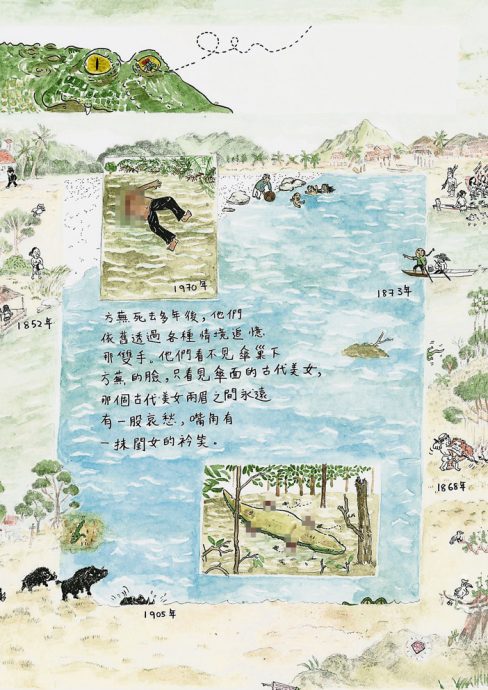 1970年
1873年
1852年
方蕪死去多年後，他們
依舊透過各種情境追憶
那雙手。他們看不見傘巢下
方蕪的臉，只看見傘面的古代美女，
那個古代美女兩眉之間永遠
有一股哀愁，嘴角有
一抹閨女的衿笑。
1868年
1905年